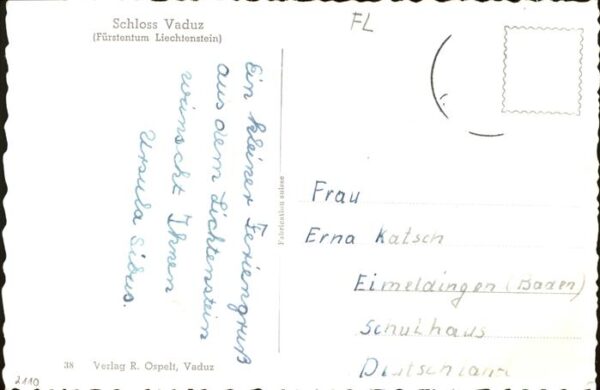 Schloss Vaduz
(Fürstentum Liechtenstein)
FL
Ein kleiner Feriengruß
aus dem Lichtenstein
wünscht Ihnen
Ursula
Fabrication suisse
Frau
Erna Katsch
Eimeldingen (Baden)
Schulhaus
Deutschland
38 Verlag R. Ospelt, Vaduz
2110